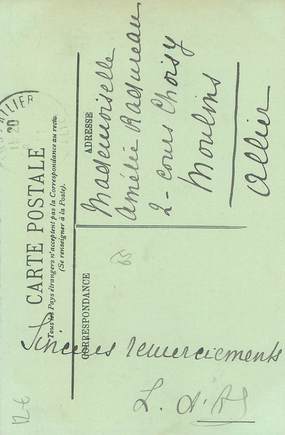 CARTE POSTALE
Tous les Pays étrangers n'acceptent pas la Correspondance au recto.
(Se renseigner à la Poste).
CORRESPONDANCE
ADRESSE
Mademoiselle
Amélie
2 - cours Choisy
Moulins
Allier
Sincères remerciements
L. d'
LLIER
20
12 €